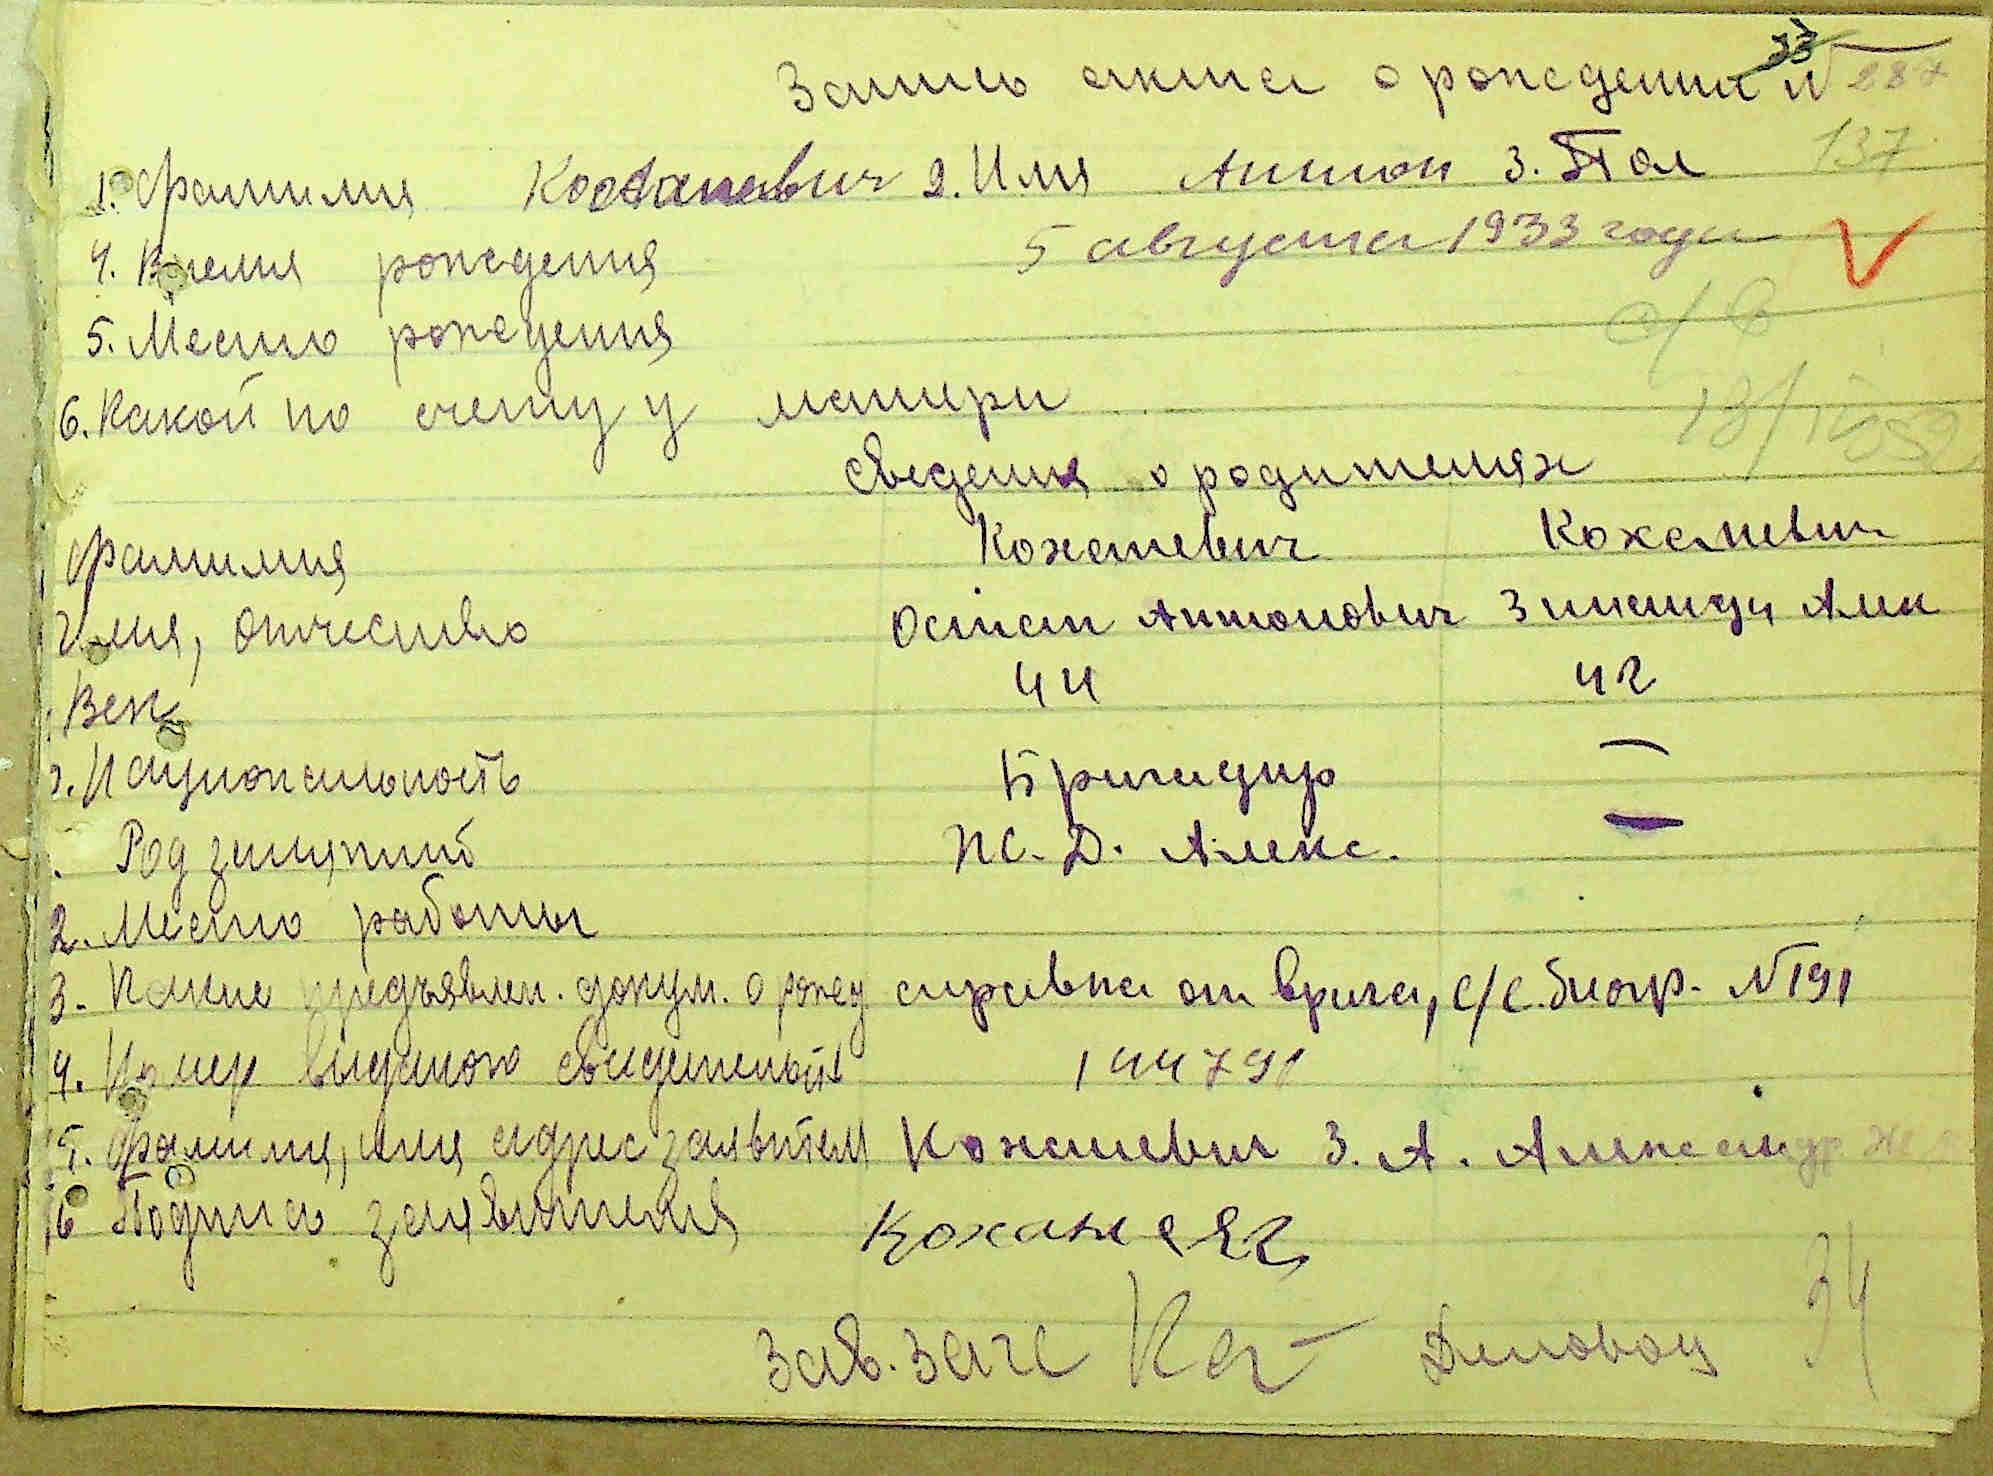 Запись акта о рождении № 287
33
137
1. Фамилия Коханевич 2. Имя Антон 3. Пол
4. Время рождения 5 августа 1933 года
5. Место рождения
6. Какой по счету у матери
Сведения о родителях
Фамилия Коханевич Коханевич
Имя, отчество Остап Антонович Зинаида Алек
Век 44 42
Национальность Бригадир —
Род занятий Ж.-Д. Алекс. —
2. Место работы
3. Какие предъявлен. докум. о рожд справка от врача, с/с. биогр. № 191
4. Номер выданого свидетельств 144791
15. Фамилия, имя адрес заявителя Коханевич З. А. Александр
16 Подпись заявителя
Зав. Загс
34